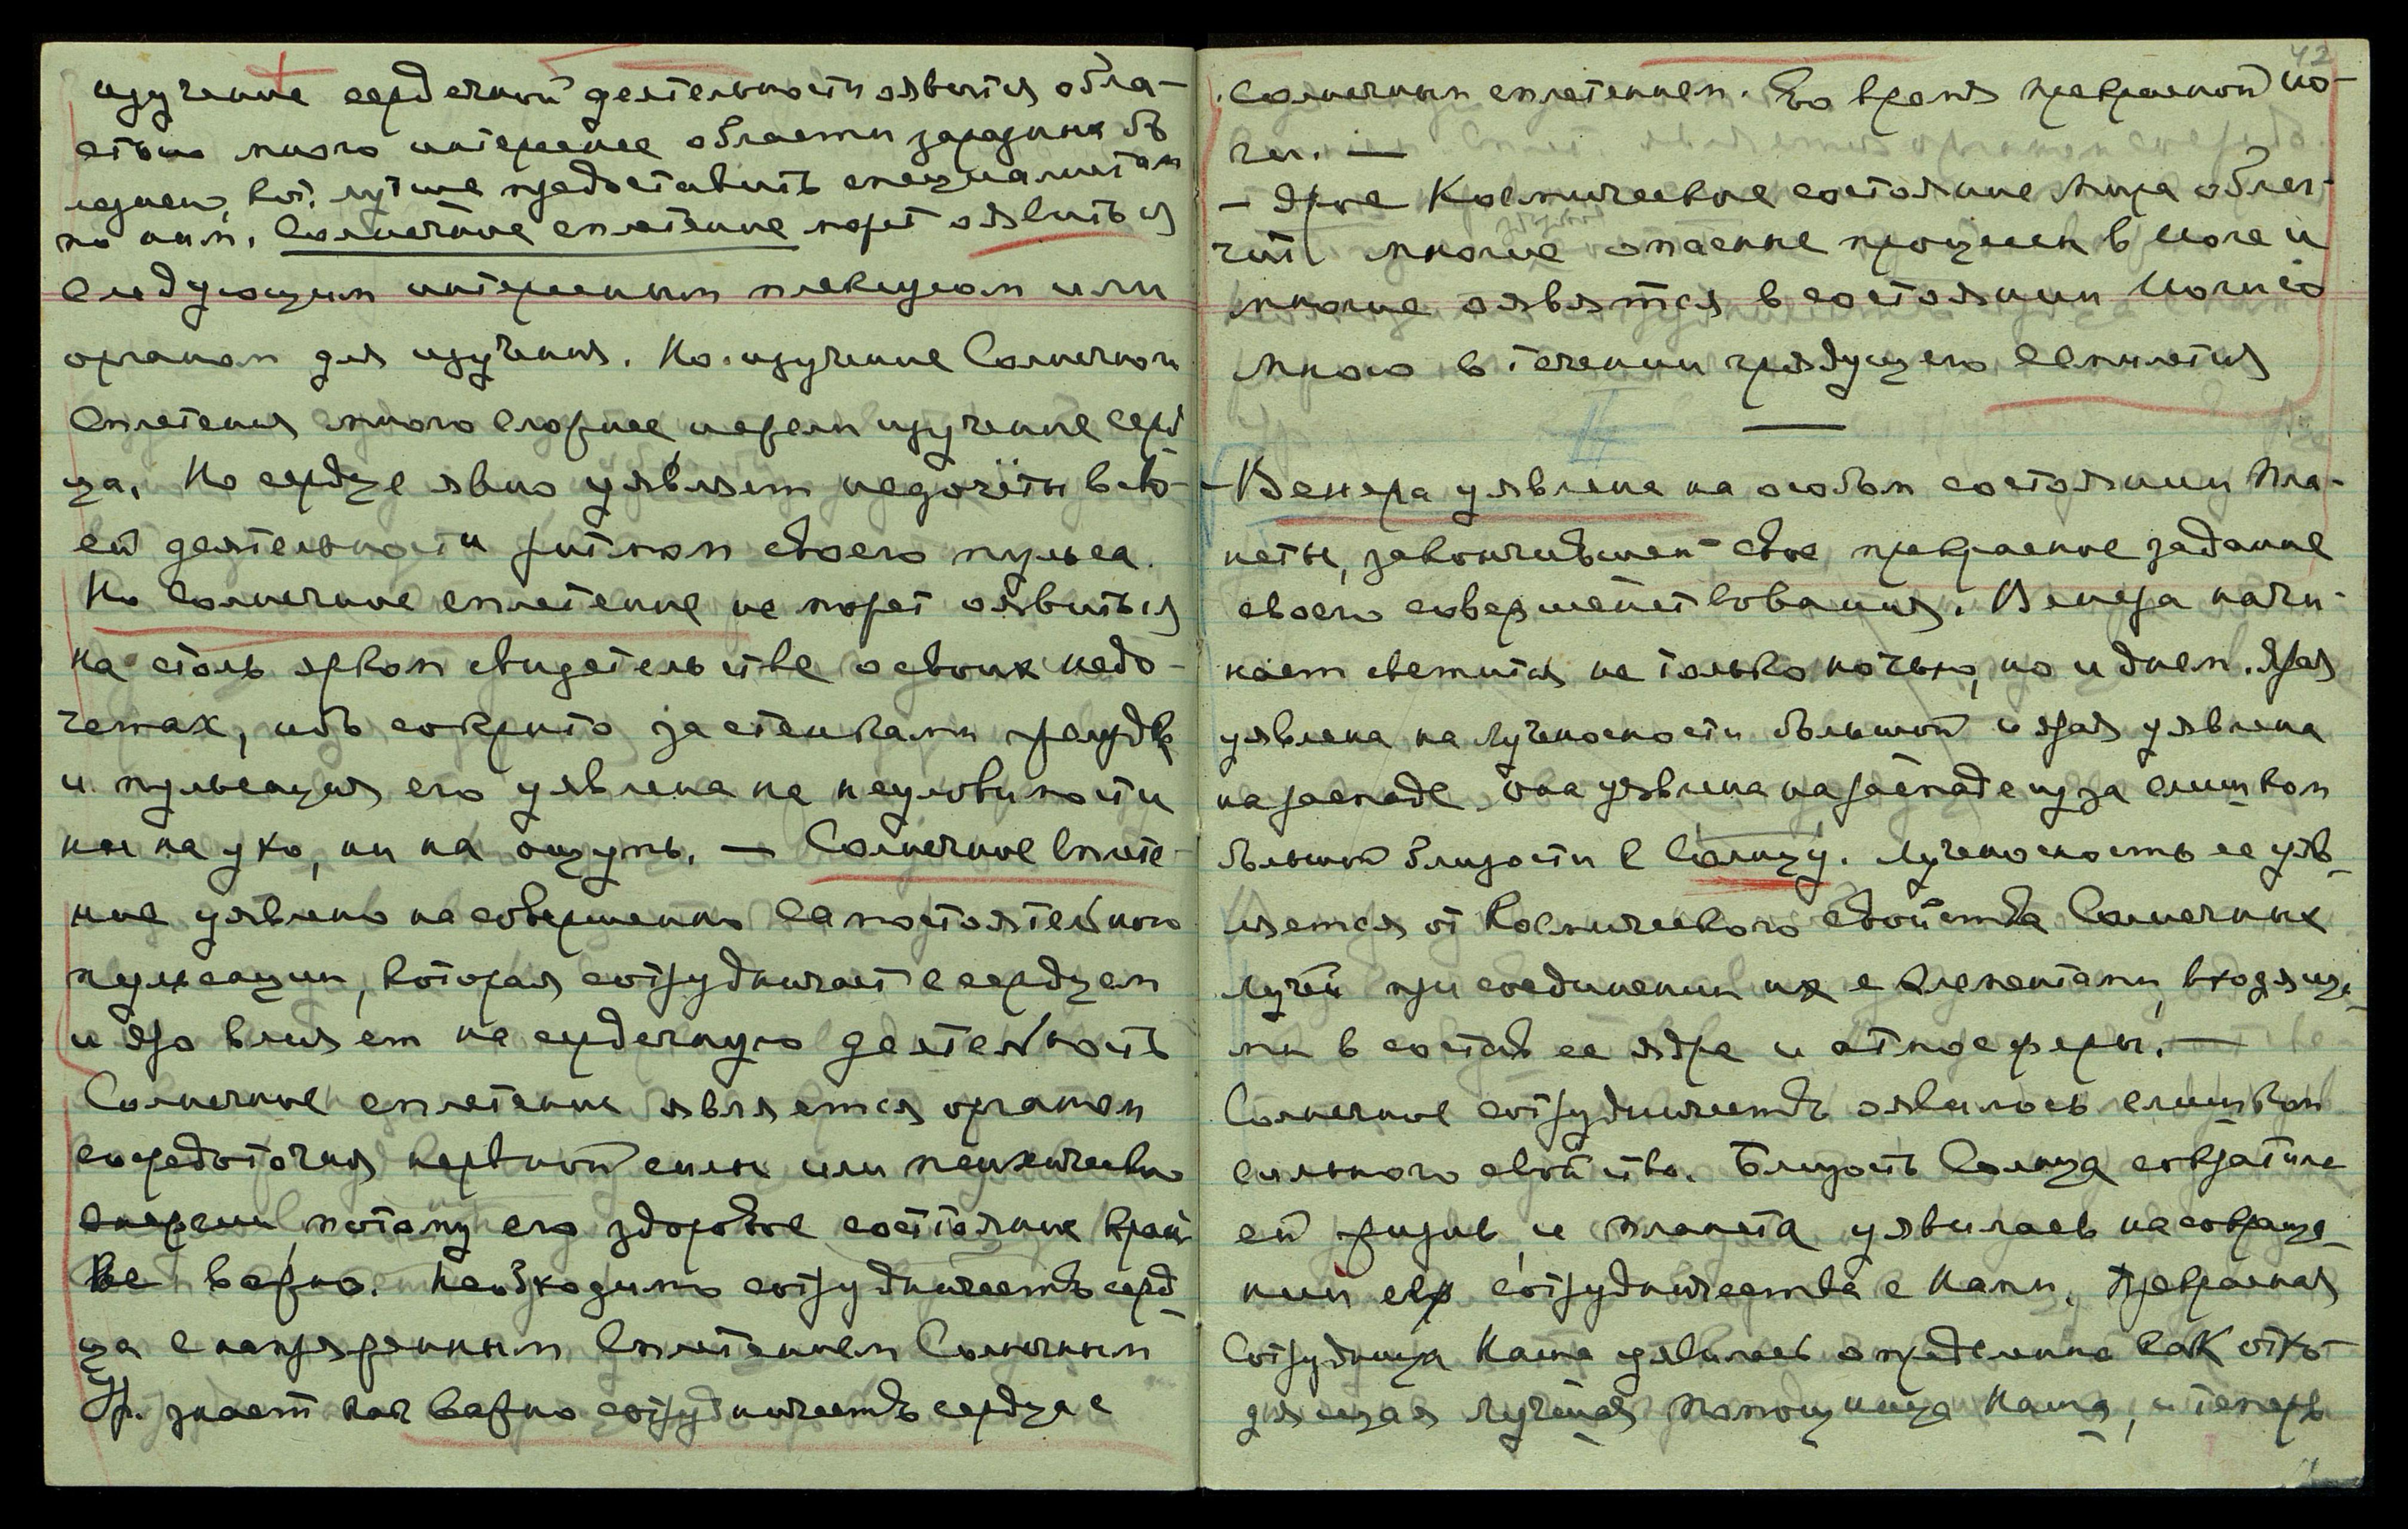 изучение сердечной деятельности явится обла-
стью много интереснее области зародыша бо
лезней, кот. лучше предоставить специалистам
по ним. Солнечное сплетение может оявиться
следующим интересным или
органом для изучения. Но изучение Солнечного
сплетения много сложнее нежели изучение серд
ца. Но сердце явно уявляет недочёты в сво-
ей деятельности ритмом своего пульса.
Но Солнечное сплетение не может оявиться
на столь ярком свидетельстве о своих недо-
четах, ибо сокрыто за стенками желудка
и пульсация его уявлена на неуловимости
ни на ухо, ни на ощупь. — Солнечное сплете-
ние уявлено на совершенно самостоятельной
пульсации, которая сотрудничает с сердцем
и яро влияет на сердечную деятельность
Солнечное сплетение является органом
сосредоточия нервной силы или психической
энергии, потому его здоровое состояние край
не важно. Необходимо сотрудничество серд-
ца с напряженным Сплетением Солнечным
Ур. знает как важно сотрудничество сердца с
42
Солнечным сплетением. Во время прекрасной но-
чи. —
— Ярое Космическое состояние Мира облег-
чит многие опасные процессы в Йоге и
многие оявятся в состоянии Йогизо
много в течении грядущего семилетия
—
— Венера уявлена на особом состоянии пла-
неты, закончившей свое прекрасное задание
своего совершенствования. Венера начи-
нает светиться не только ночью, но и днем. Ярая
уявлена на лучености большой и ярая уявлена
на распаде. Она уявлена на распаде из за слишком
большой близости к Солнцу. Лученосность ее уяв-
ляется от Космического свойства Солнечных
Лучей при соединении их с элементами, входящи-
ми в состав ее ядра и атмосферы. —
Солнечное сотрудничество оявилось слишком
сильного свойства. Близость Солнца сократила
ей жизнь, и планета уявилась на сокраще-
нии его сотрудничества с Нами. Прекрасная
Сотрудница Наша уявилась определенно как отхо-
дящая лучшая помощница Наша, и теперь